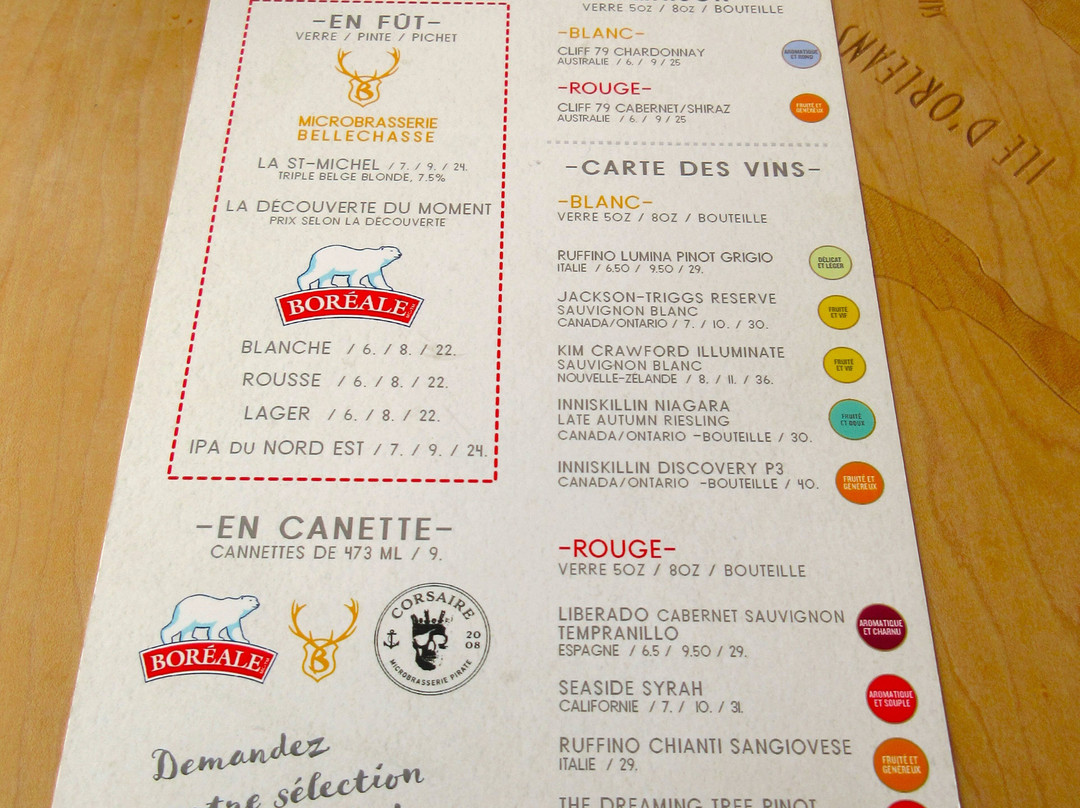 -EN FÛT-
VERRE / PINTE / PICHET
B
MICROBRASSERIE
BELLECHASSE
LA ST-MICHEL / 7. / 9. / 24.
TRIPLE BELGE BLONDE, 7.5%
LA DÉCOUVERTE DU MOMENT
PRIX SELON LA DÉCOUVERTE
BORÉALE
BLANCHE / 6. / 8. / 22.
ROUSSE / 6. / 8. / 22.
LAGER / 6. / 8. / 22.
IPA DU NORD EST / 7. / 9. / 24.
-EN CANETTE-
CANNETTES DE 473 ML / 9.
BORÉALE
B
CORSAIRE
20
08
MICROBRASSERIE PIRATE
Demandez
sélection
VERRE 5OZ / 8OZ / BOUTEILLE
-BLANC-
CLIFF 79 CHARDONNAY
AUSTRALIE / 6. / 9 / 25
AROMATIQUE
ET ROND
-ROUGE-
CLIFF 79 CABERNET/SHIRAZ
AUSTRALIE / 6. / 9 / 25
FRUITÉ ET
GÉNÉREUX
-CARTE DES VINS-
-BLANC-
VERRE 5OZ / 8OZ / BOUTEILLE
RUFFINO LUMINA PINOT GRIGIO
ITALIE / 6.50 / 9.50 / 29.
DÉLICAT
ET LÉGER
JACKSON-TRIGGS RESERVE
SAUVIGNON BLANC
CANADA/ONTARIO / 7. / 10. / 30.
FRUITÉ
ET VIF
KIM CRAWFORD ILLUMINATE
SAUVIGNON BLANC
NOUVELLE-ZÉLANDE / 8. / 11. / 36.
FRUITÉ
ET VIF
INNISKILLIN NIAGARA
LATE AUTUMN RIESLING
CANADA/ONTARIO -BOUTEILLE / 30.
FRUITÉ
ET DOUX
INNISKILLIN DISCOVERY P3
CANADA/ONTARIO -BOUTEILLE / 40.
FRUITÉ ET
GÉNÉREUX
-ROUGE-
VERRE 5OZ / 8OZ / BOUTEILLE
LIBERADO CABERNET SAUVIGNON
TEMPRANILLO
ESPAGNE / 6.5 / 9.50 / 29.
AROMATIQUE
ET CHARNU
SEASIDE SYRAH
CALIFORNIE / 7. / 10. / 31.
AROMATIQUE
ET SOUPLE
RUFFINO CHIANTI SANGIOVESE
ITALIE / 29.
FRUITÉ ET
GÉNÉREUX
THE DREAMING TREE PINOT
ILE D'ORLÉANS